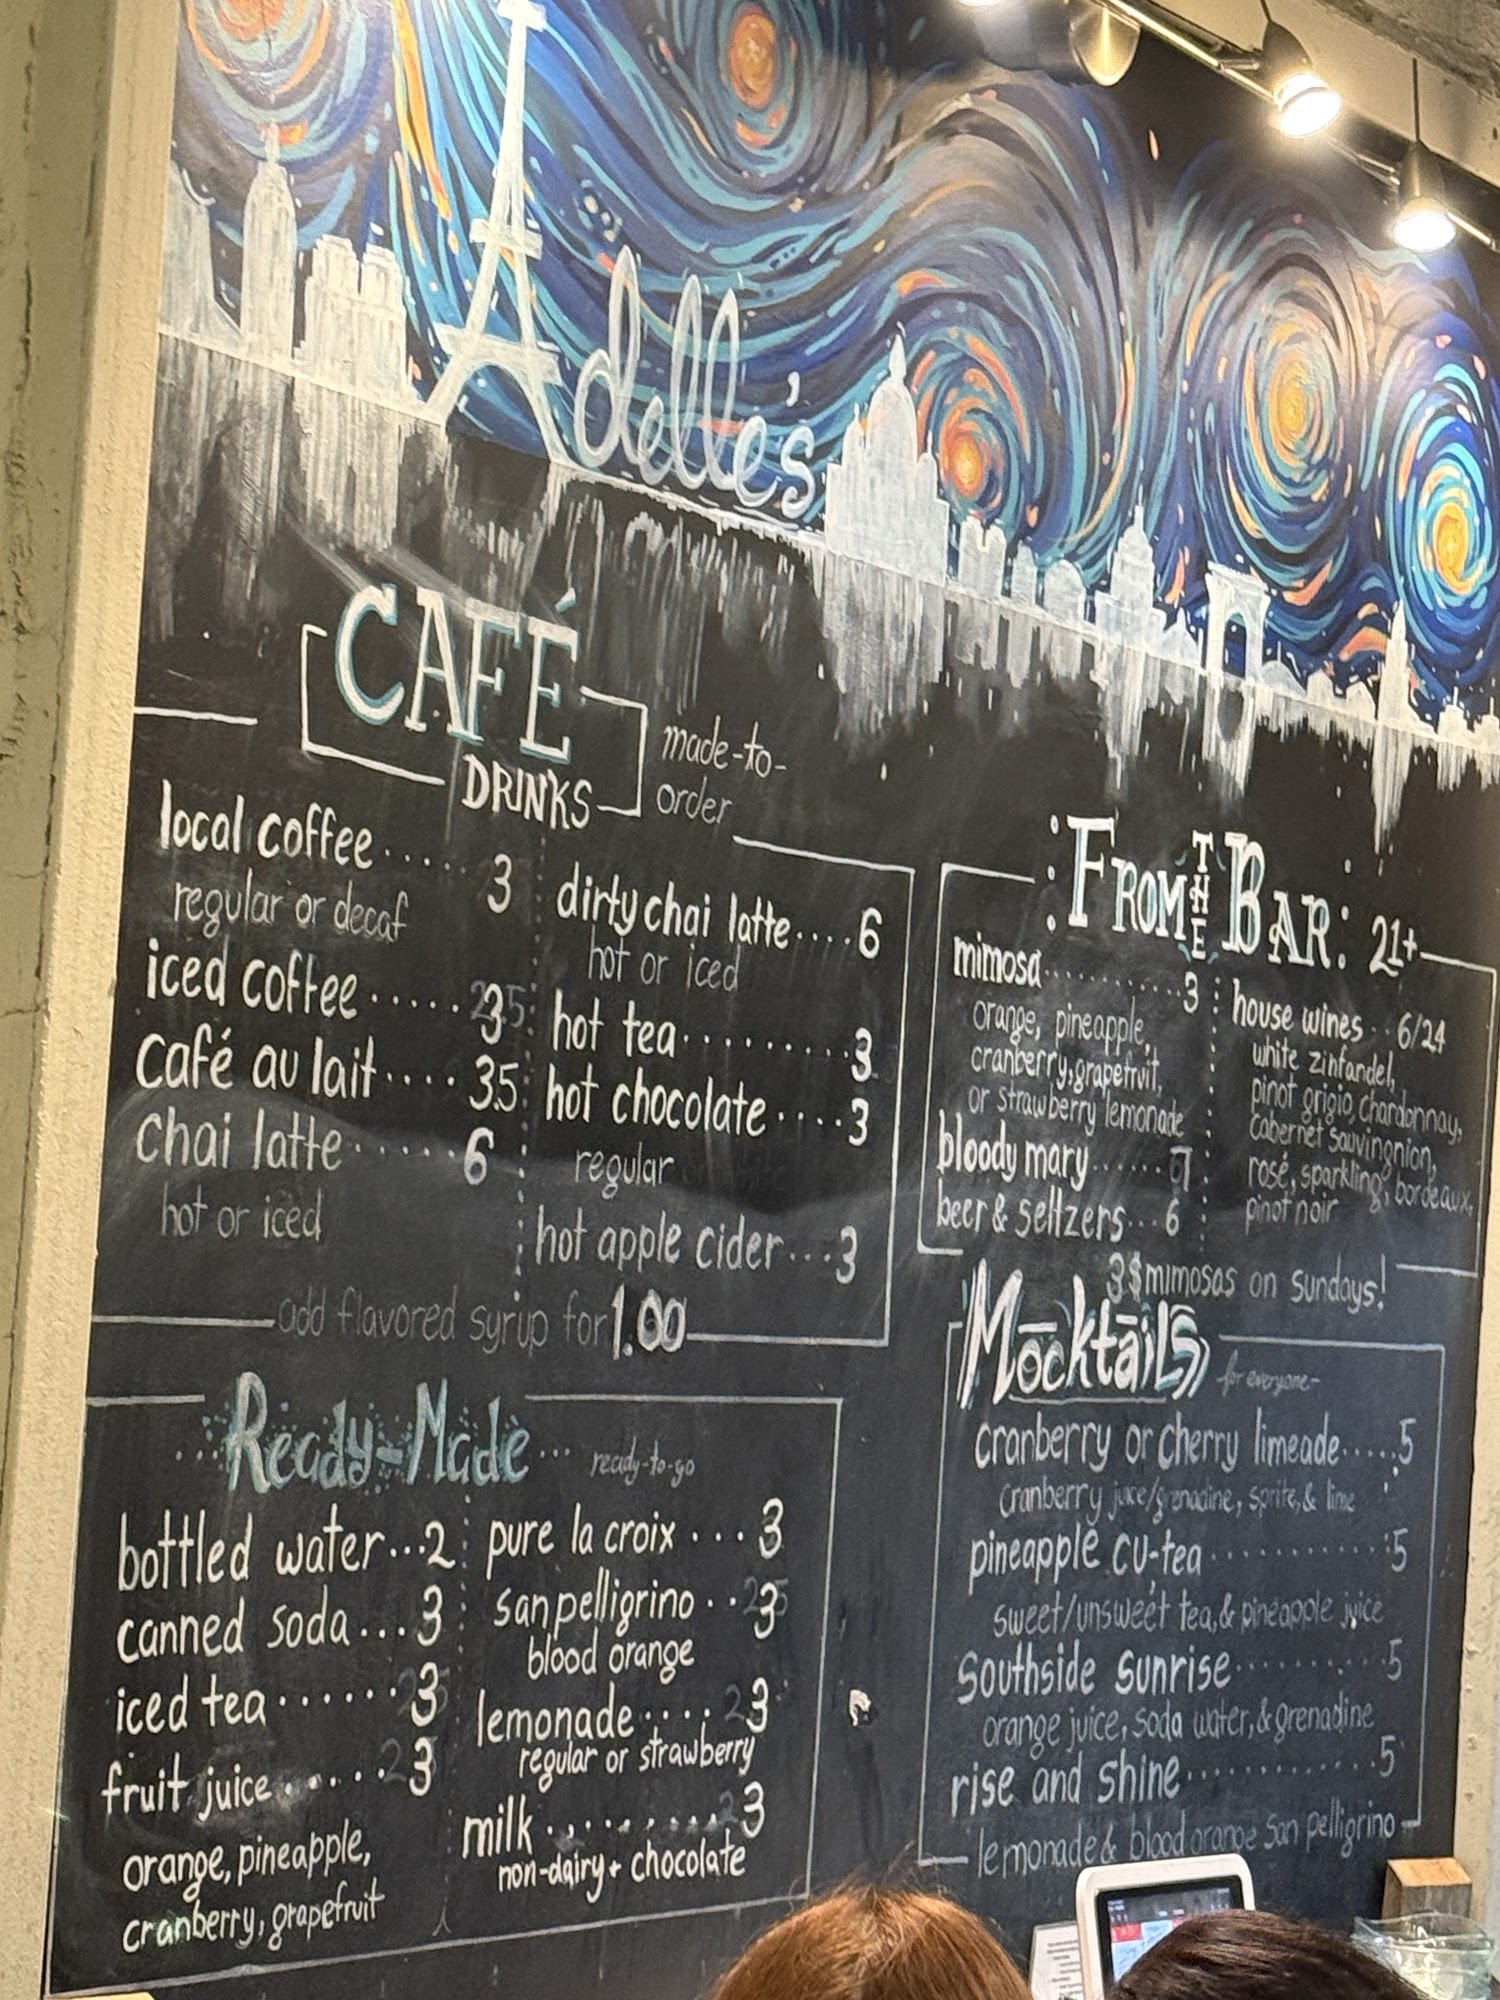 Adelle's
CAFÉ
DRINKS
made-to-
order
local coffee .... 3
regular or decaf
iced coffee ..... 3
café au lait .... 3.5
chai latte ..... 6
hot or iced
dirty chai latte .... 6
hot or iced
hot tea ......... 3
hot chocolate .... 3
regular
hot apple cider ... 3
add flavored syrup for 1.00
FROM THE BAR: 21+
mimosa .......... 3
orange, pineapple,
cranberry, grapefruit,
or strawberry lemonade
bloody mary ...... 7
beer & seltzers ... 6
house wines .. 6/24
white zinfandel,
pinot grigio, chardonnay,
cabernet sauvingnion,
rosé, sparkling, bordeaux,
pinot noir
3$ mimosas on sundays!
Ready-Made ... ready-to-go
bottled water ... 2
canned soda ... 3
iced tea ...... 3
fruit juice ..... 3
orange, pineapple,
cranberry, grapefruit
pure la croix ... 3
san pelligrino .. 3
blood orange
lemonade .... 3
regular or strawberry
milk ......... 3
non-dairy + chocolate
Mocktails for everyone-
cranberry or cherry limeade ..... 5
cranberry juice/grenadine, sprite, & lime
pineapple cu-tea ........... 5
sweet/unsweet tea, & pineapple juice
southside sunrise .......... 5
orange juice, soda water, & grenadine
rise and shine ............ 5
lemonade & blood orange san pelligrino